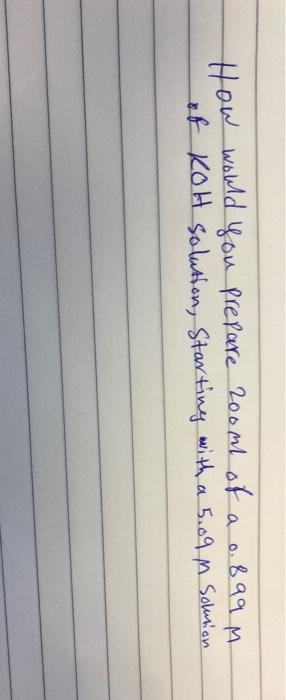 How would you prepare 200ml of a 0.899 M
of KOH solution, Starting with a 5.09 M Solution